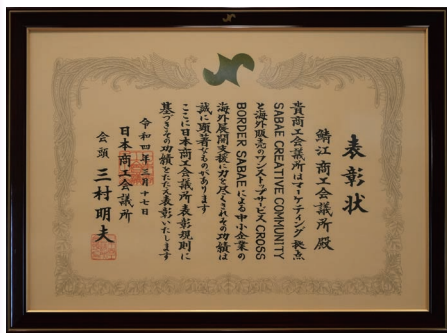 表彰状
鯖江商工会議所 殿
貴商工会議所はマーケティング拠点
SABAE CREATIVE COMMUNITY
と海外販売のワンストップサービスCROSS
BORDER SABAEによる中小企業の
海外展開支援に力を尽くされその功績は
誠に顕著なものがあります
ここに日本商工会議所表彰規則に
基づきその功績をたたえ表彰いたします
令和四年三月十七日
日本商工会議所
会頭 三村明夫